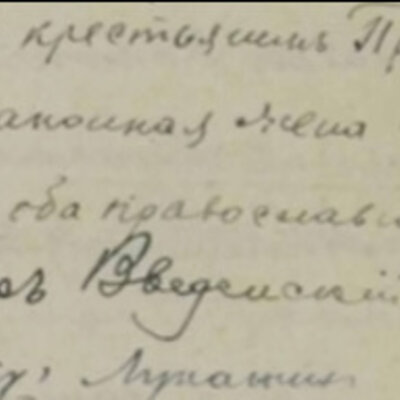 крестьянинъ Пр
аконная жена
оба православн
въ Введенскій
Лукашин